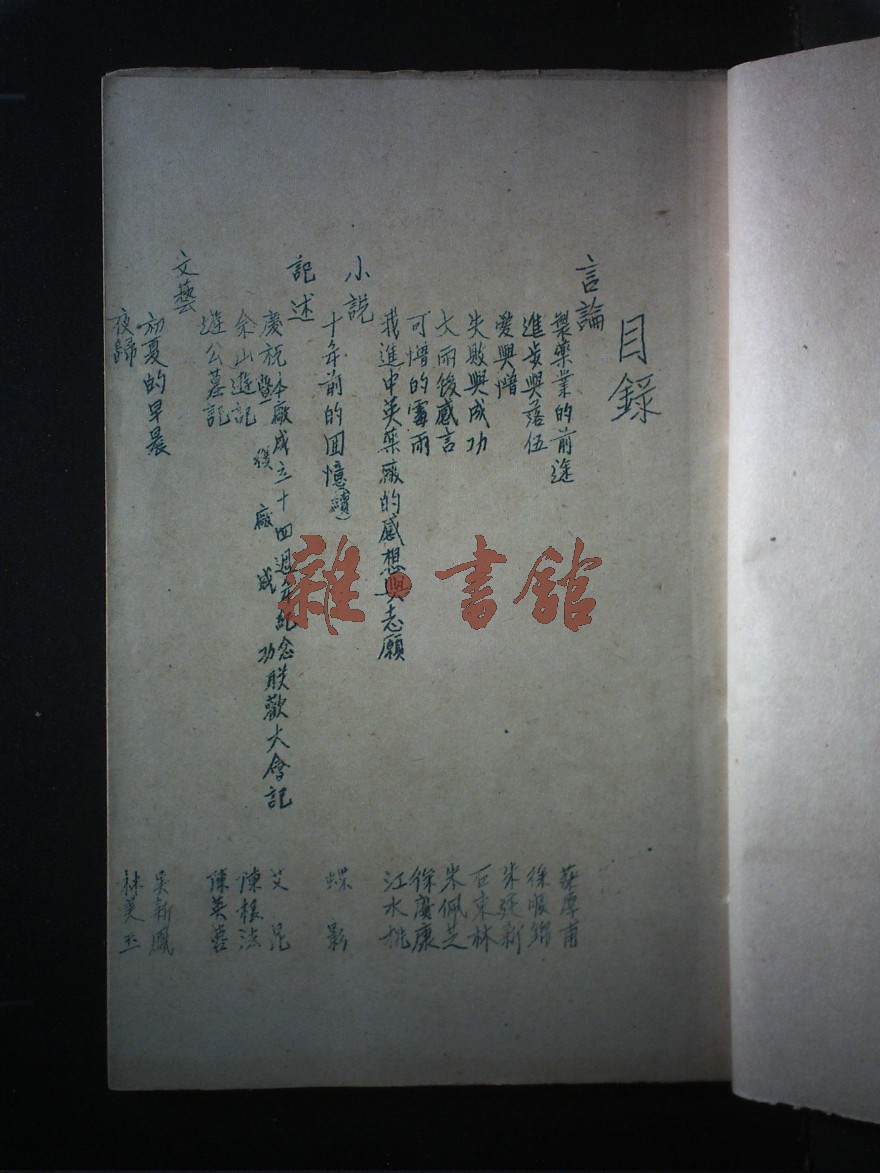 目錄
言論
製藥業的前途
進步與落伍
愛與憎
失敗與成功
大雨後感言
可憎的霉雨
我進中英藥廠的感想與志願
小說
十年前的回憶(續)
記述
慶祝本廠成立十四週年紀念聯歡大會記
暨 後廠成功
佘山遊記
遊公墓記
文藝
初夏的早晨
夜歸
厚甫
徐
朱
林
朱佩芝
徐康
江水
蝶影
艾昆
陳根法
陳英蓉
吳新鳳
林美玉
雜·書館